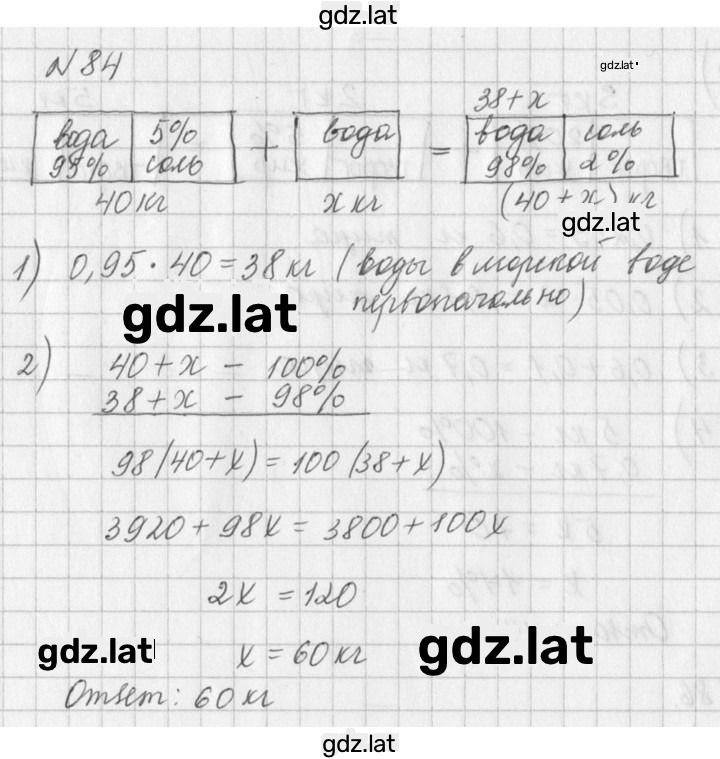 gdz.lat
gdz.lat
№ 84
38+x
вода 5% + вода = вода соль
95% соль 98% 2%
40 кг x кг (40 + x) кг
gdz.lat
1) 0,95 · 40 = 38 кг (воды в морской воде
первоначально)
gdz.lat
2) 40 + x - 100%
38 + x - 98%
98(40+x) = 100(38+x)
3920 + 98x = 3800 + 100x
2x = 120
x = 60 кг
gdz.lat
gdz.lat
Ответ: 60 кг
gdz.lat